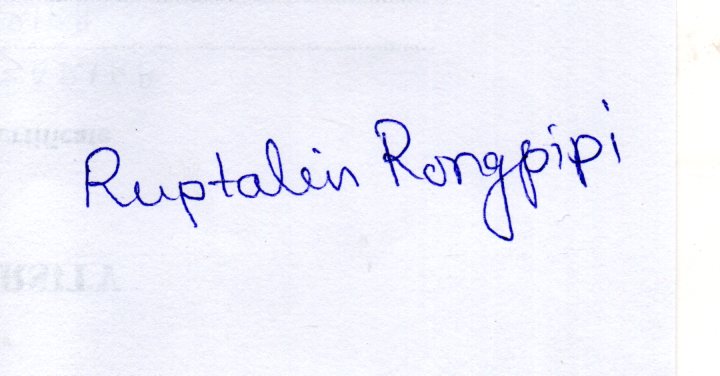 Ruptalin Rongpipi